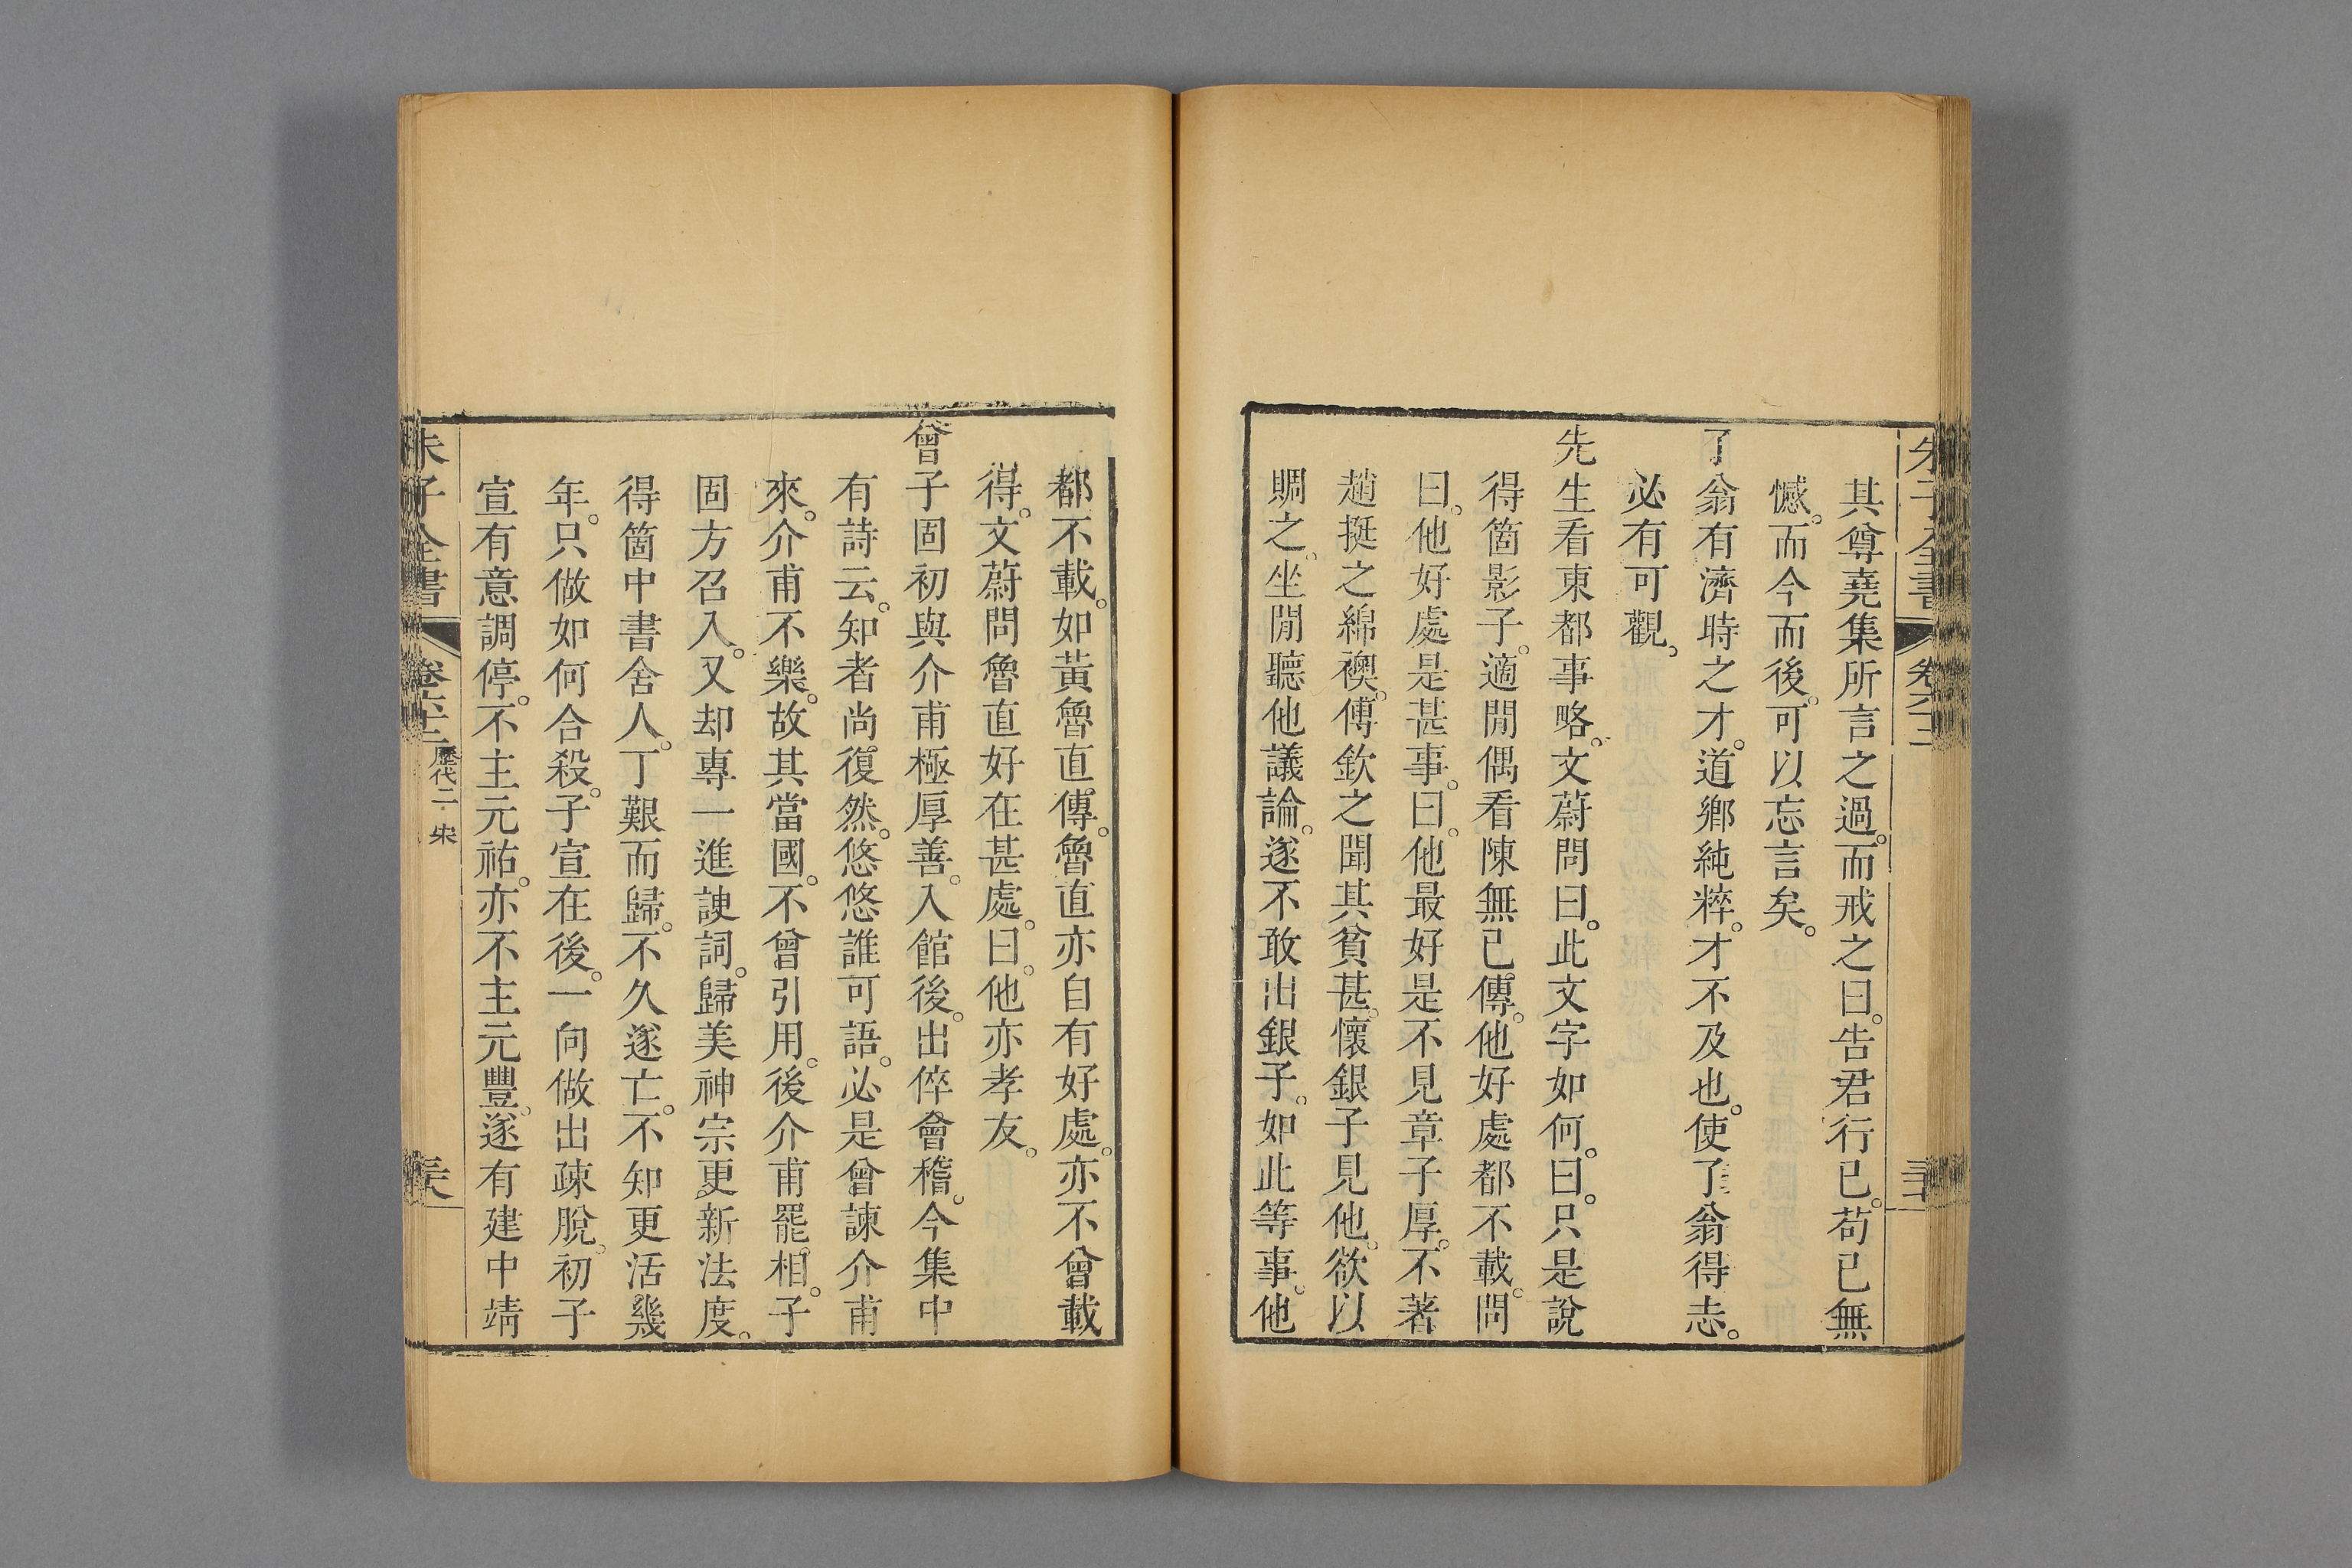 其尊堯集所言之過。而戒之曰。告君行已。苟已無
憾。而今而後。可以忘言矣。
了翁有濟時之才。道鄉純粹。才不及也。使了翁得志。
必有可觀。
先生看東都事略。文蔚問曰。此文字如何。曰。只是說
得箇影子。適閒偶看陳無已傳。他好處都不載。問
曰。他好處是甚事。曰。他最好是不見章子厚。不著
趙挺之綿襖。傅欽之聞其貧甚。懷銀子見他。欲以
賙之。坐閒聽他議論。遂不敢出銀子。如此等事。他
都不載。如黃魯直傳。魯直亦自有好處。亦不曾載
得。文蔚問魯直好在甚處。曰。他亦孝友。
曾子固初與介甫極厚善。入館後。出倅會稽。今集中
有詩云。知者尚復然。悠悠誰可語。必是曾諫介甫
來。介甫不樂。故其當國。不曾引用。後介甫罷相。子
固方召入。又却專一進諛詞。歸美神宗更新法度。
得箇中書舍人。丁艱而歸。不久遂亡。不知更活幾
年。只做如何合殺。子宣在後。一向做出疎脫。初子
宣有意調停。不主元祐。亦不主元豐。遂有建中靖
朱子全書 卷六十二 歷代二 宋